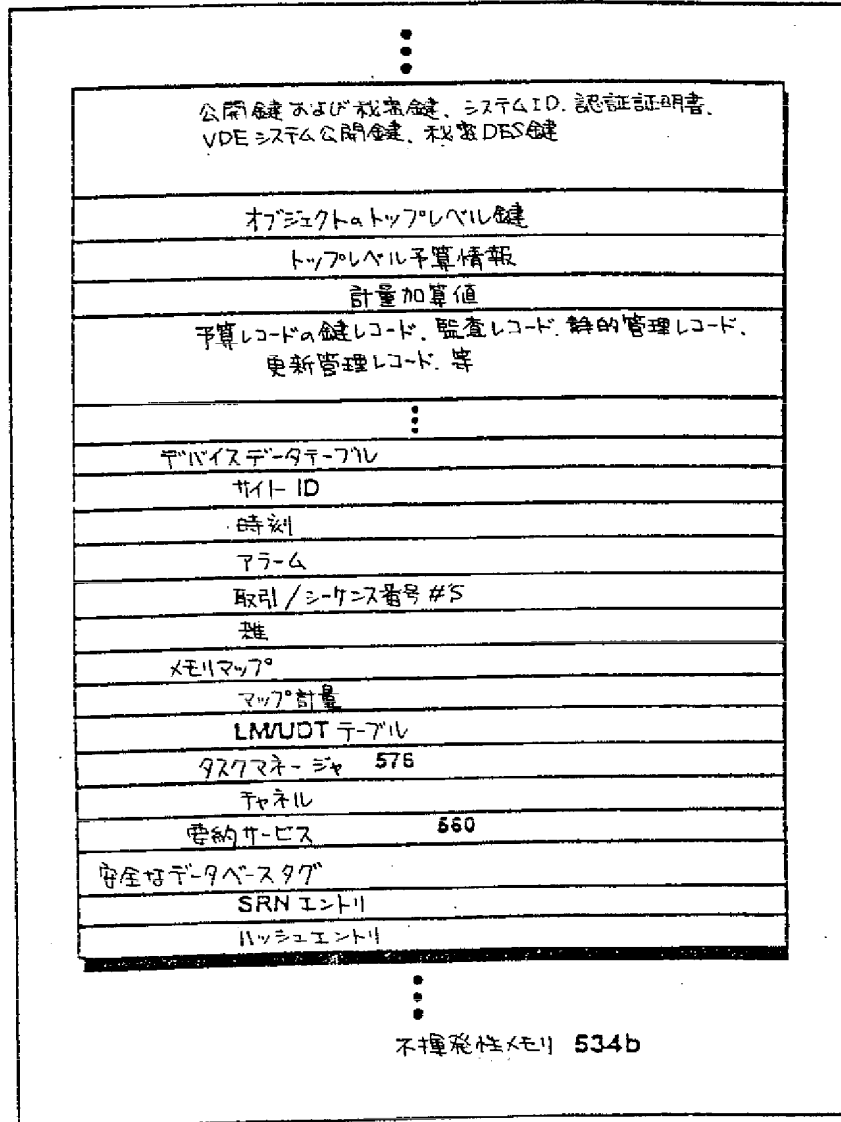 公開鍵および秘密鍵、システムID、認証証明書、
VDEシステム公開鍵、秘密DES鍵
オブジェクトのトップレベル鍵
トップレベル予算情報
計量加算値
予算レコードの鍵レコード、監査レコード、静的管理レコード、
更新管理レコード、等
デバイスデータテーブル
サイトID
時刻
アラーム
取引/シーケンス番号#'S
雑
メモリマップ
マップ計量
LM/UDT テーブル
タスクマネージャ 576
チャネル
要約サービス 560
安全なデータベースタグ
SRN エントリ
ハッシュエントリ
不揮発性メモリ 534b